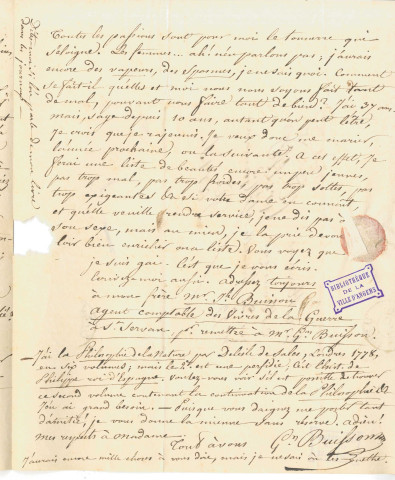 Toutes les passions sont pour moi le tonnerre qui
s'éloigne. Les femmes... ah! n'en parlons pas; j'aurais
encore des vapeurs, des spasmes, je ne sais quoi. Comment
se fait-il qu'elles et moi nous nous soyons fait tant
de mal, pouvant nous faire tant de bien? J'ai 37 ans,
mais, sage depuis 10 ans, autant qu'on peut l'être,
je crois que je rajeunis. Je veux donc me marier,
l'année prochaine, ou la suivante. A cet effet, je
ferai une liste de beautés encore un peu jeunes,
pas trop mal, pas trop froides, pas trop sottes, pas
trop exigeantes. Or si votre dame en connait
et qu'elle veuille rendre service, je ne dis pas
son sexe, mais au mien, je la prie de vou-
loir bien enrichir ma liste. Vous voyez que
je suis gai. C'est que je vous écris.
Ecrivez-moi aussi. adressez toujours
à mon frère Mr. Jh. Buisson
agent comptable des Vivres de la Guerre
à St. Servan pr. remettre à Mr. Gme Buisson.
BIBLIOTHÈQUE
DE LA
VILLE D'ANGERS
- J'ai la Philosophie de la Nature par Delisle de Sales, Londres 1778,
en six volumes; mais le 2e. est une perfidie: c'est l'hist. de
Philippe roi d'Espagne. Voulez-vous voir s'il est possible de trouver
ce second volume contenant la continuation de la Philosophie &c
J'en ai grand besoin. - Puisque vous daignez me porter tant
d'amitié, je vous donne la mienne sans réserve. adieu!
mes respects à madame
Tout à vous
Gme Buisson
J'aurais encore mille choses à vous dire, mais je ne sais où les mettre.